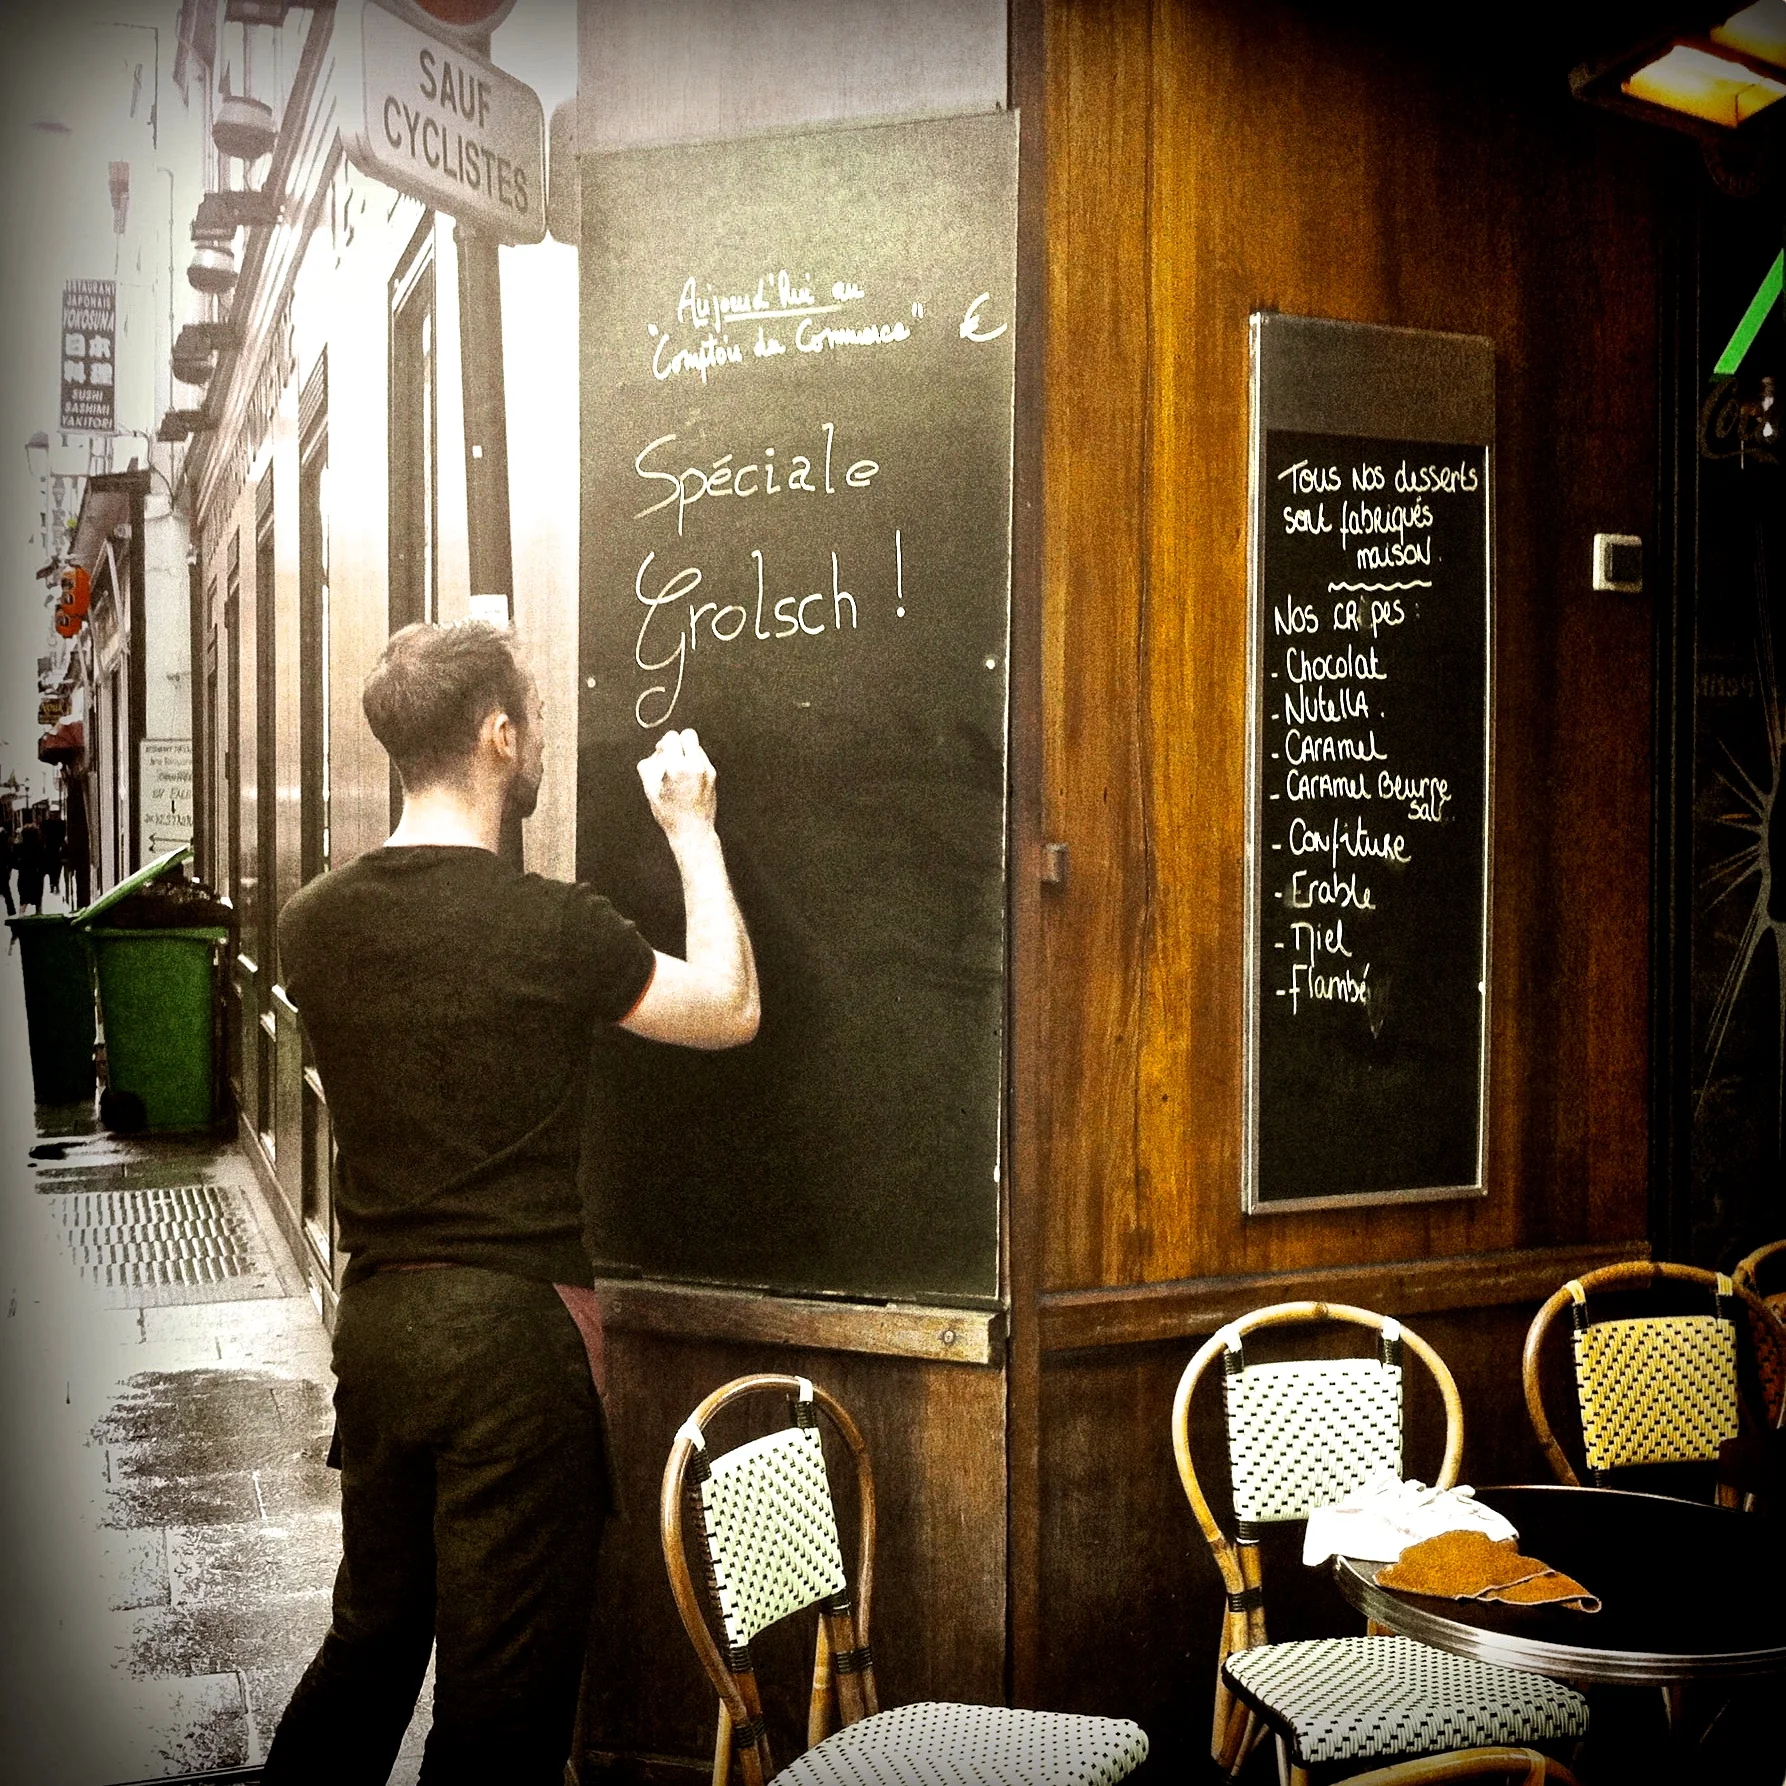 SAUF
CYCLISTES
RESTAURANT
JAPONAIS
YOKOSUNA
日本
料理
SUSHI
SASHIMI
YAKITORI
Aujourd'hui au
"Comptoir du Commerce" €
Spéciale
Grolsch !
Tous nos desserts
sont fabriqués
maison.
Nos crêpes :
- Chocolat
- Nutella.
- Caramel
- Caramel Beurre
salé
- Confiture
- Erable
- Miel
- Flambé